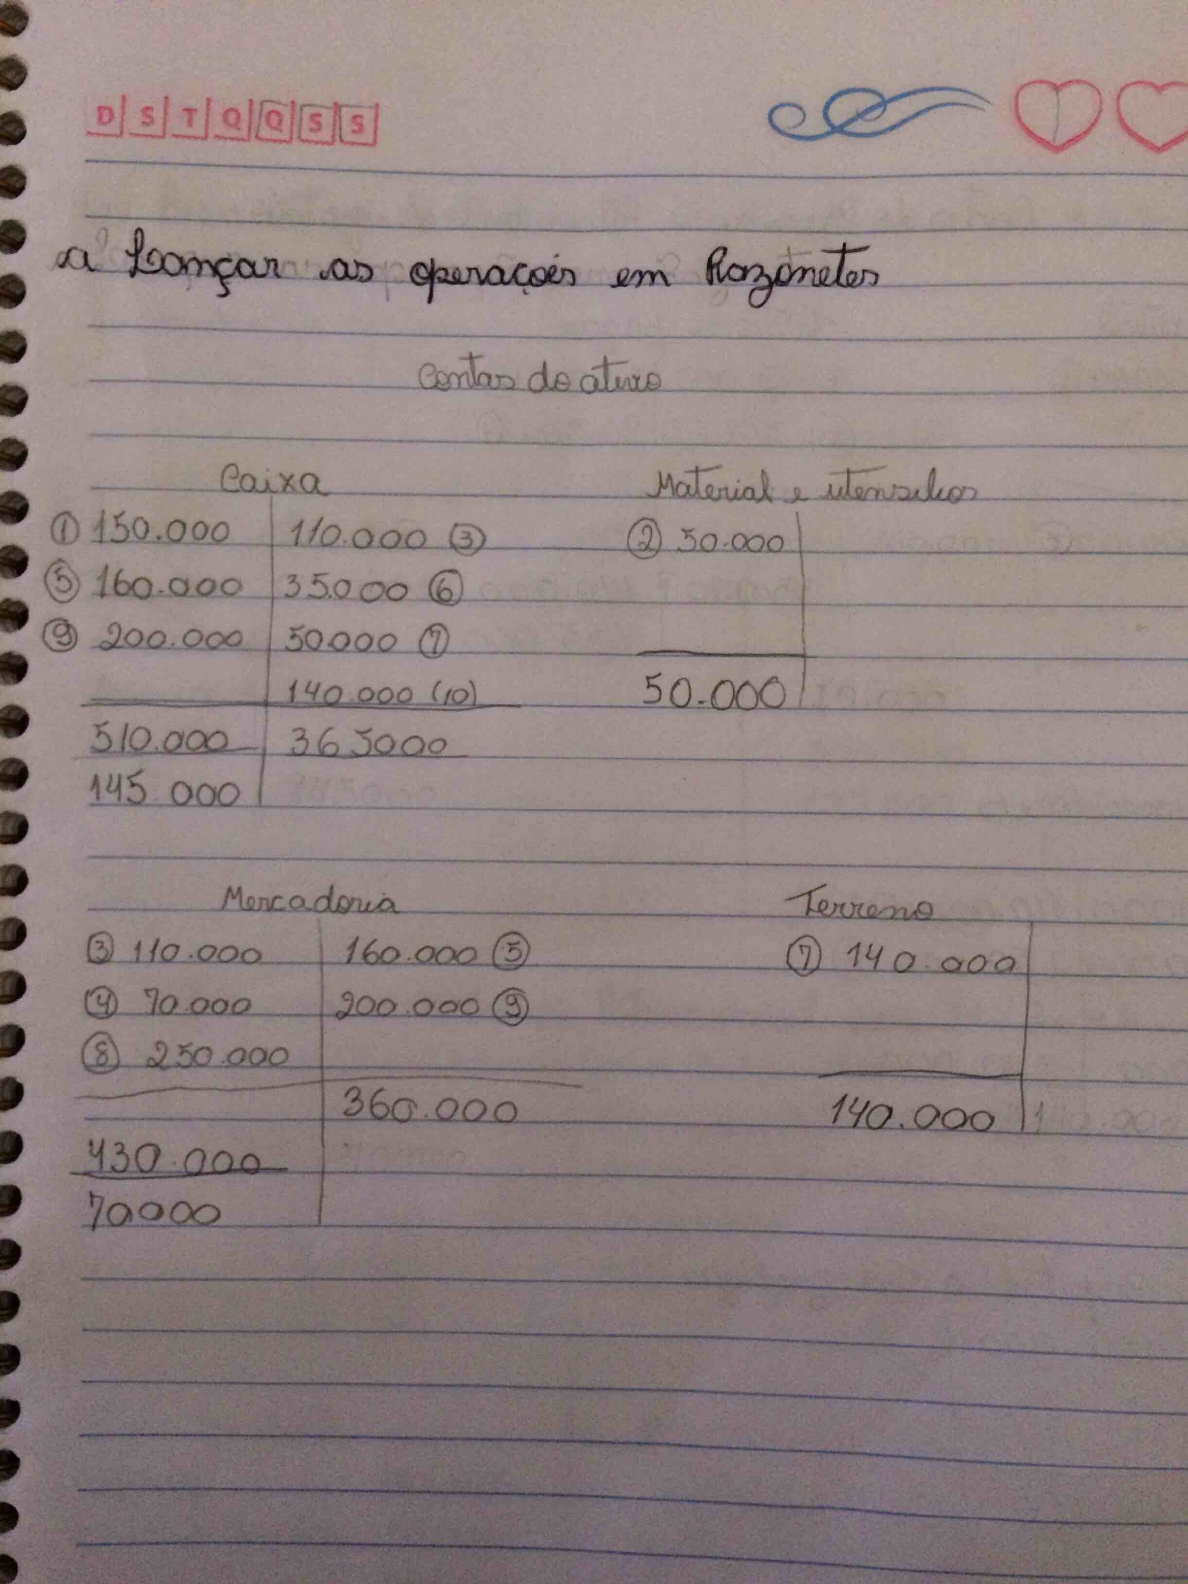 D S T Q Q S S
a Lançar as operações em Razonetes
Contas do ativo
Caixa Material e utensilios
① 150.000 110.000 ③ ② 50.000
⑤ 160.000 35.000 ⑥
⑨ 200.000 50.000 ⑦
140.000 (10) 50.000
510.000 365000
145.000
Mercadoria Terreno
③ 110.000 160.000 ⑤ ⑦ 140.000
④ 70.000 200.000 ⑨
⑧ 250.000
360.000 140.000
430.000
70000